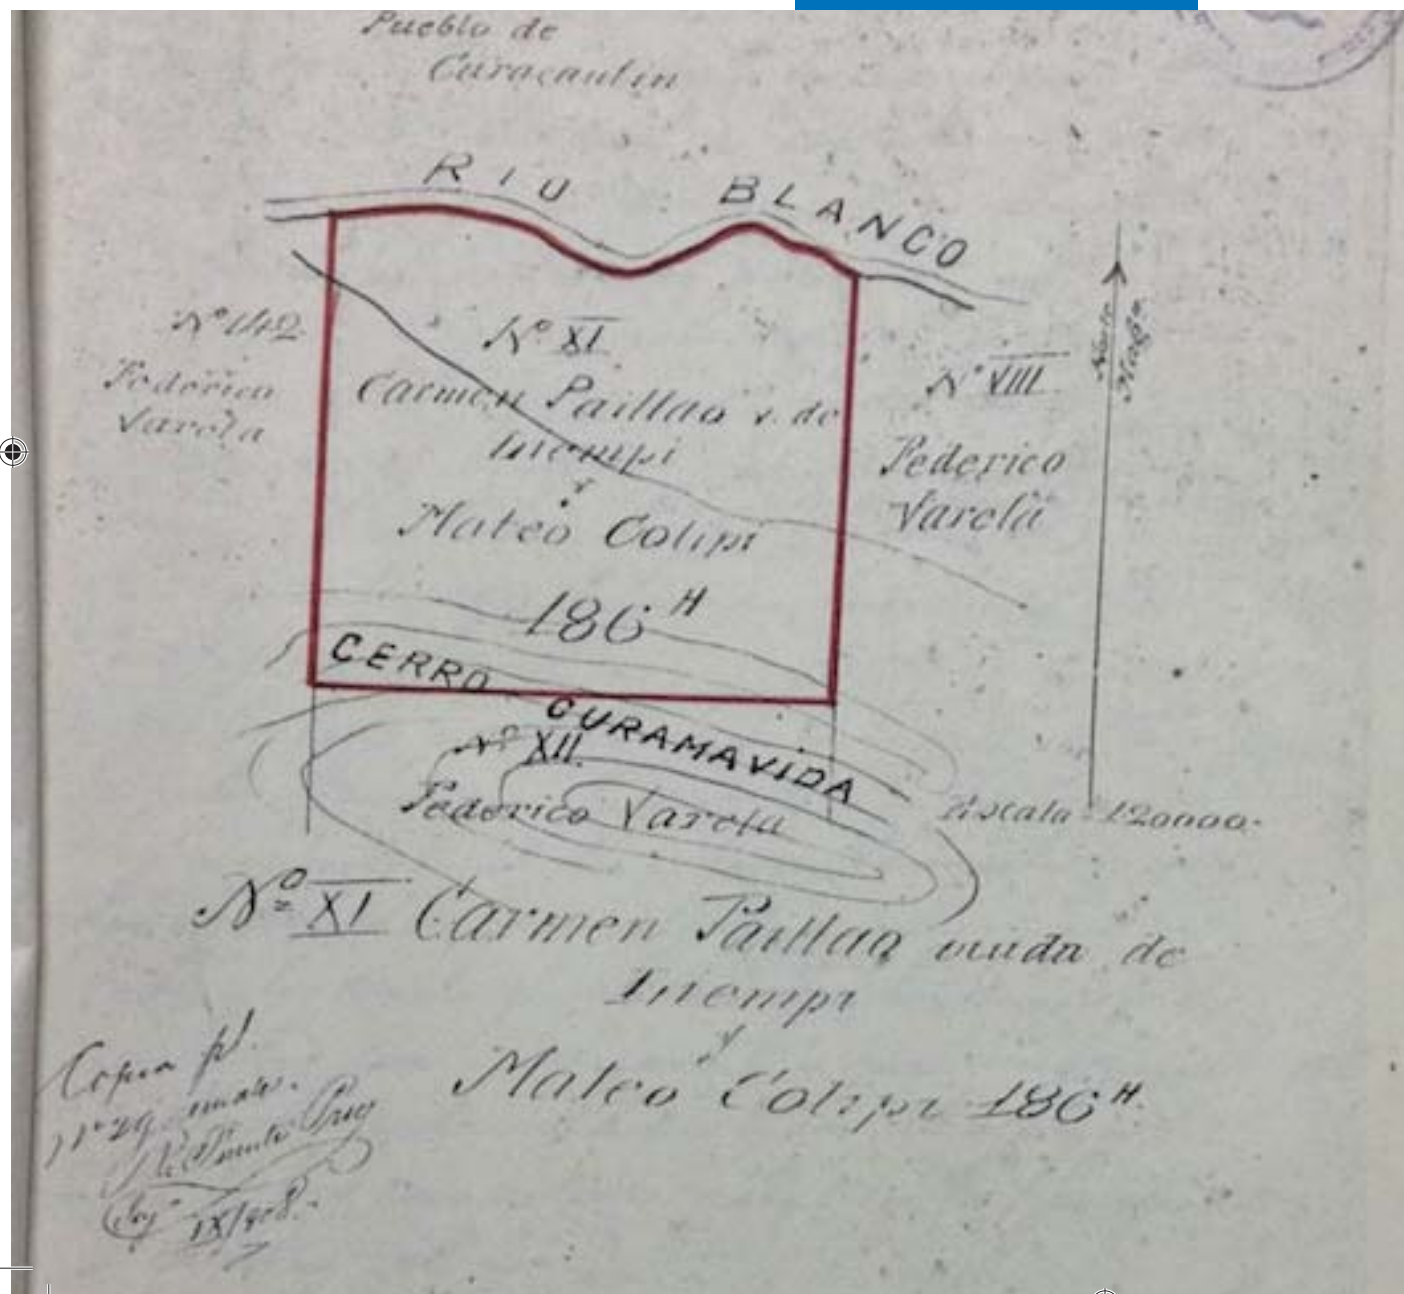 Pueblo de
Curacautin
RIO BLANCO
Nº 142
Federico
Varela
Nº XI
Carmen Paillao v. de
Inompi
y
Mateo Colipi
186 H
Nº VIII
Federico
Varela
Norte
Magº
CERRO
CURAMAVIDA
Nº XII.
Federico Varela
Escala 1:20000.
Nº XI Carmen Paillao viuda de
Inompi
y
Mateo Colipi 186 H.
Copia
IX/908.